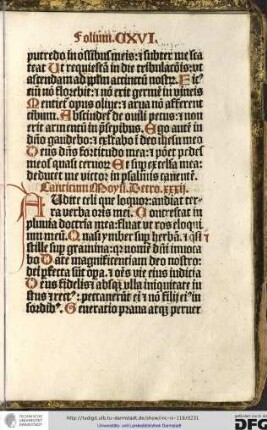 Folium. CXVI.
putredo in ossibus meis: ⁊ subter me sca
teat Ut requiescā in die tribulacōis: vt
ascendam ad ipm̄ accinctū nostrȝ. Fic⁹
em̄ nō florebit: ⁊ nō erit germē in vineis
Mentiet̉ opus oliue: ⁊ arua nō afferent
cibum. Abscindet̉ de ouili pecus: ⁊ non
erit armentū in p̄sepibus. Ego autē in
dn̄o gaudebo: ⁊ exltabo ī deo ihesu meo
Deus dn̄s fortitudo mea: ⁊ pōet pedes
meos quasi ceruoꝝ Et sup̄ excelsa mea:
deducet me victor in psalmis canentē.
Canticum Moysi. Detro. xxxij.
Audite celi que loquor: audiat ter-
ra verba oris mei. Concrescat in
pluvia doctrīa mea: fluat vt ros eloqui
um meū. Quasi ymber sup̄ herbā. ⁊ q̄si
stille sup̄ gramina: qr nomē dn̄i inuoca
bo Date magnificentiam deo nostro:
dei p̄fecta sūt oꝑa. ⁊ oēs vie eius iudicia
Deus fidelis ⁊ absqȝ vlla iniquitate iu
stus ⁊ rect⁹: peccauerūt ei ⁊ nō filij ei⁹ in
sordibꝰ. Generatio praua atqȝ peruer
http://tudigit.ulb.tu-darmstadt.de/show/inc-ii-118/0231
Universitäts- und Landesbibliothek Darmstadt
DFG